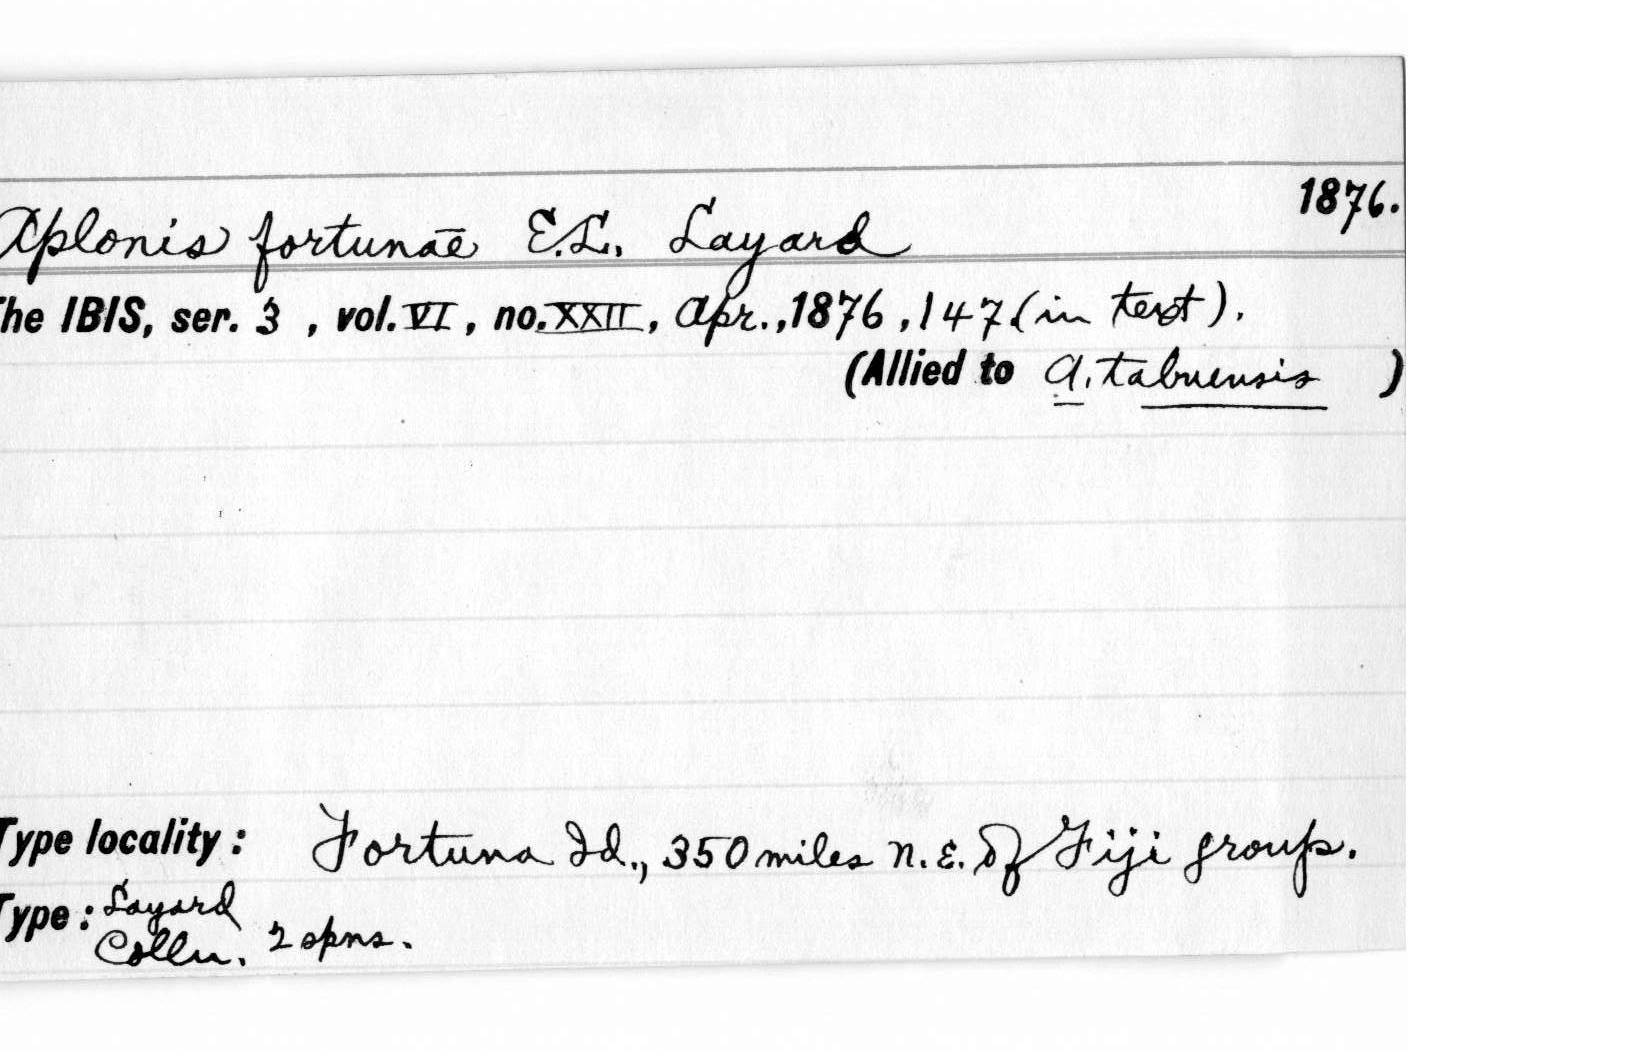 1876.
Aplonis fortunae E.L. Layard
The IBIS, ser. 3, vol. VI, no. XXII, Apr., 1876, 147 (in text).
(Allied to A. tabuensis )
Type locality: Fortuna Id., 350 miles N.E. of Fiji group.
Type: Layard
Colln. 2 spns.